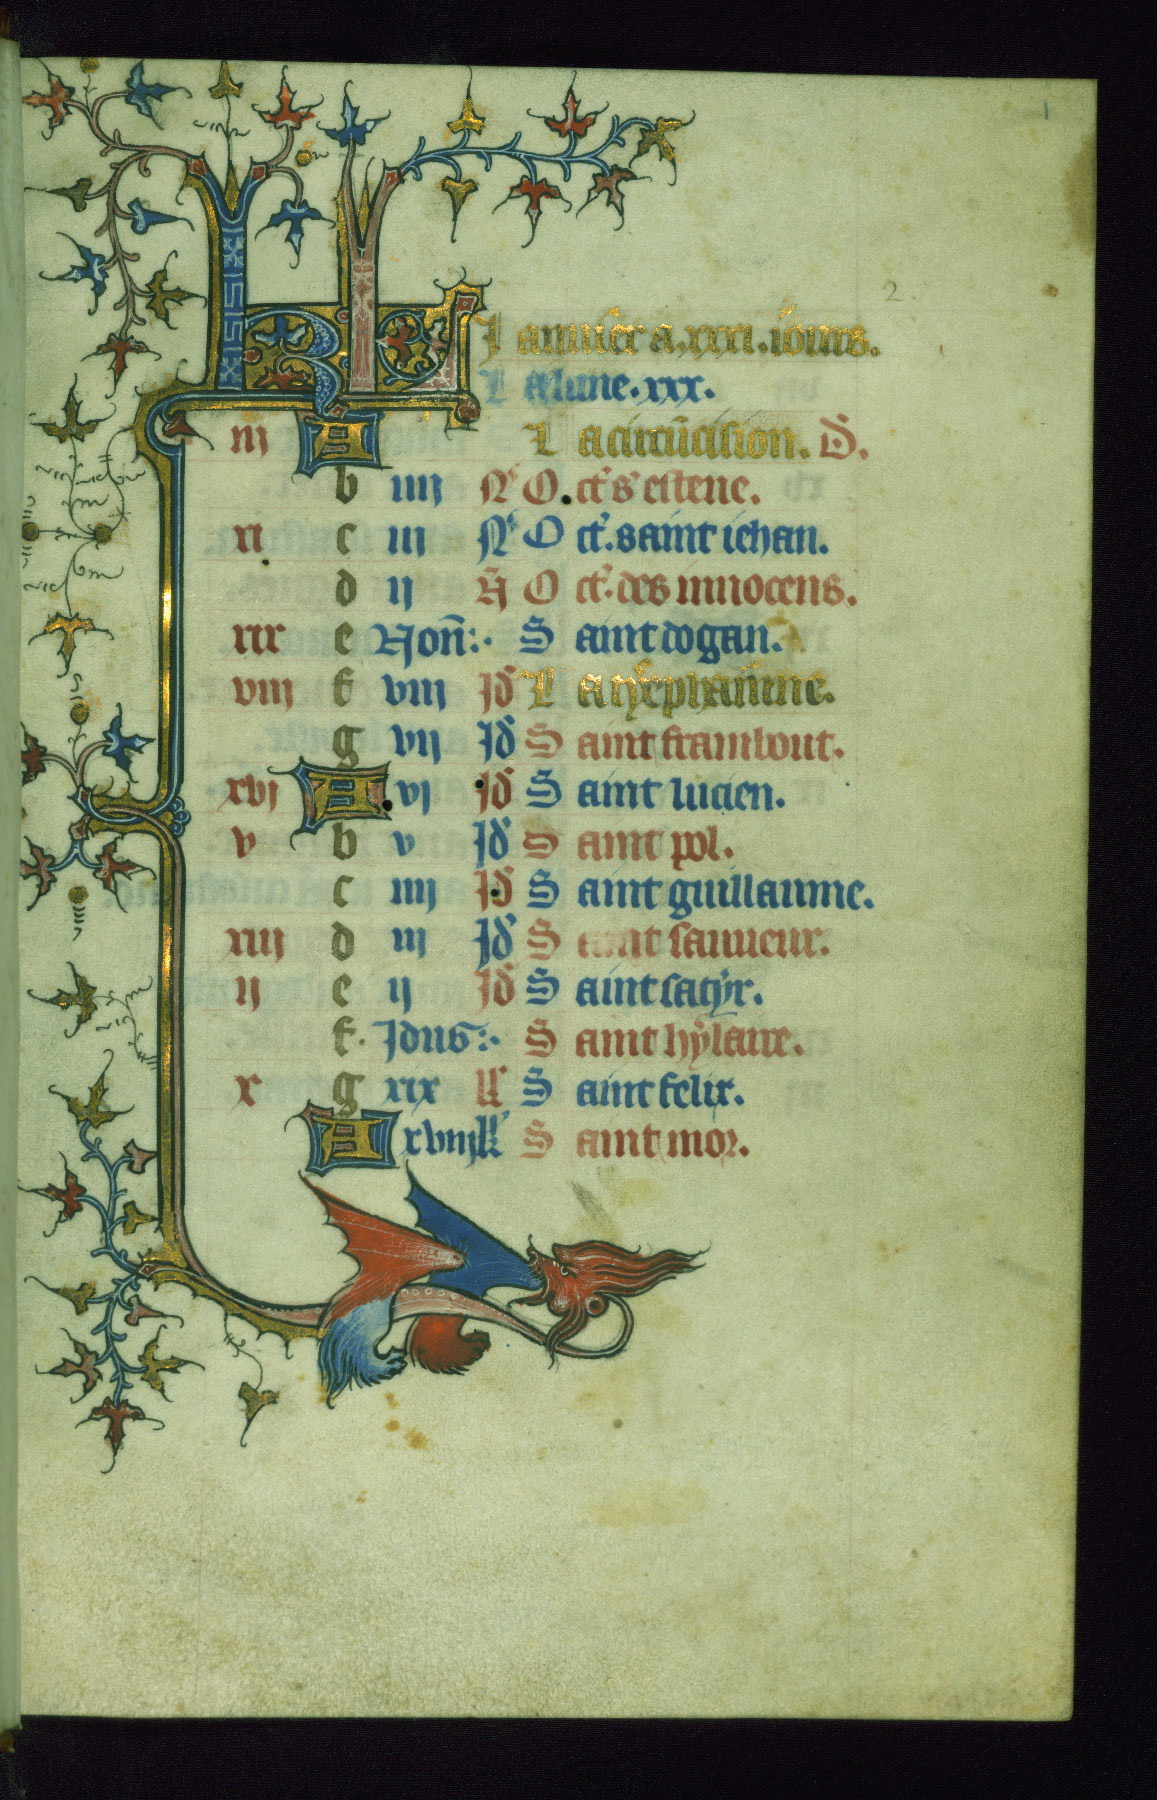 1
2
KL Januier a.xxxi.iours.
La lune.xxx.
iij A La circu̅cision. D̅.
b iiij N̅ˢ Oct̅ sˢ estene.
xi c iii N̅ˢ Oct̅.saint iehan.
d ij N̅ Oct̅.des innocens.
xix e Non̅: Saint dogan.
viij f viij Id̅ La
g vij Id̅ Saint frambout.
xvj A vj Id̅ Saint lucien.
v b v Id̅ Saint pol.
c iiij Id̅ Saint guillaume.
xiij d iij Id̅ Saint sauueur.
ij e ij Id̅ Saint satyr.
f. Idus: Saint hylaire.
x g xix kl̅ Saint felix.
A xviij kl̅ Saint mor.